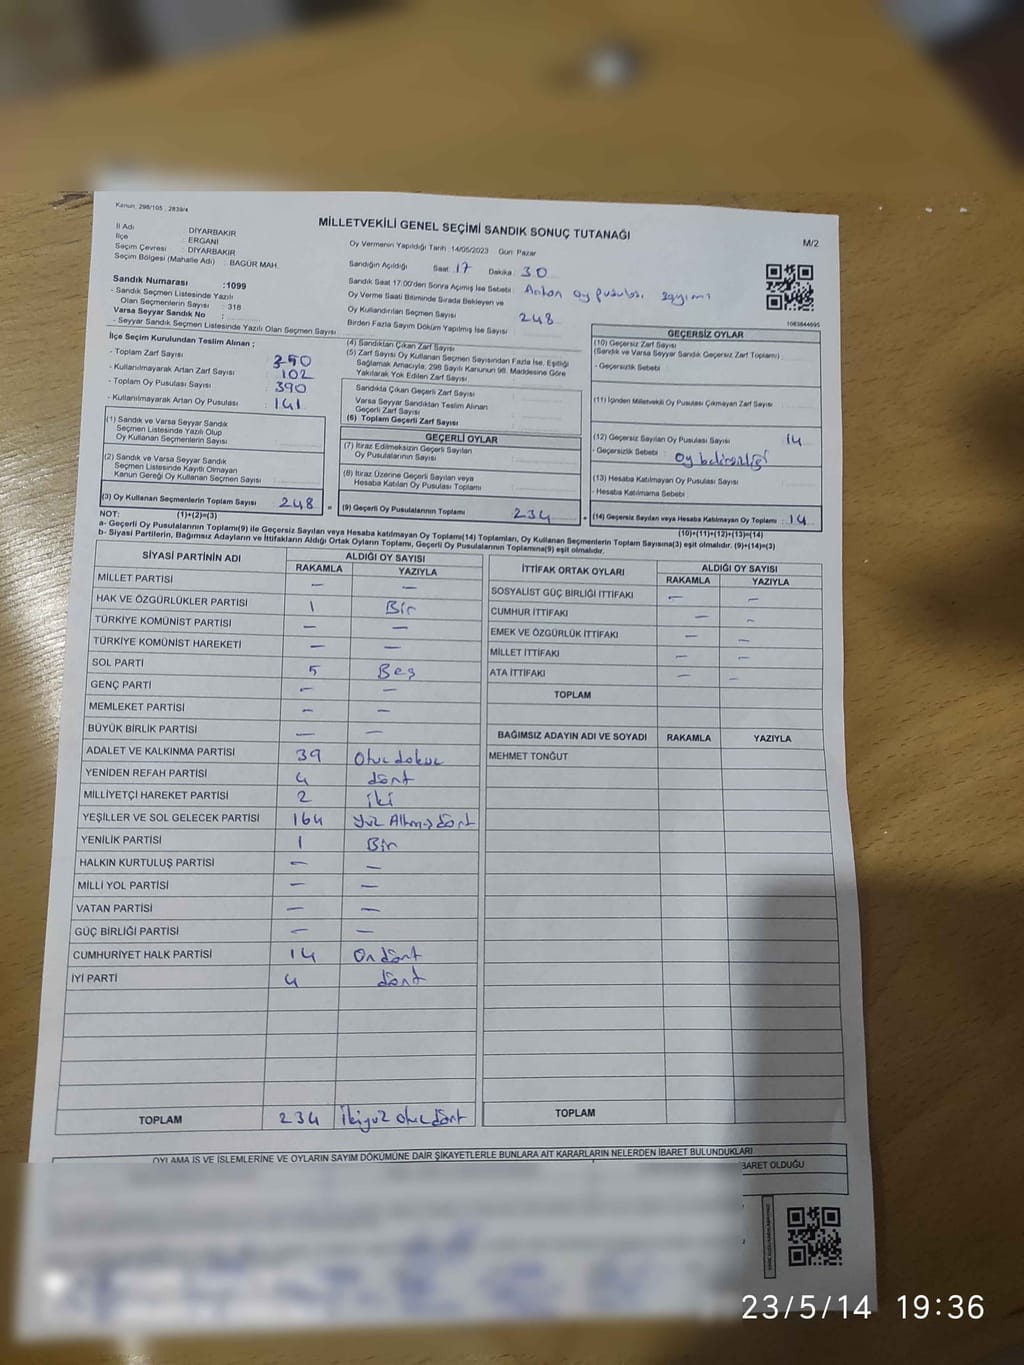 Kanun, 298/105 , 2839/4
MİLLETVEKİLİ GENEL SEÇİMİ SANDIK SONUÇ TUTANAĞI
M/2
İl Adı : DİYARBAKIR
İlçe : ERGANİ
Seçim Çevresi : DİYARBAKIR
Seçim Bölgesi (Mahalle Adı) : BAGÜR MAH.
Oy Vermenin Yapıldığı Tarih :14/05/2023 Gün: Pazar
Sandığın Açıldığı Saat 17 Dakika : 30
Sandık Saat 17:00'den Sonra Açılmış İse Sebebi : Artan oy pusulası sayımı
Oy Verme Saati Bitiminde Sırada Bekleyen ve
Oy Kullandırılan Seçmen Sayısı : 248
Birden Fazla Sayım Döküm Yapılmış İse Sayısı :
Sandık Numarası :1099
- Sandık Seçmen Listesinde Yazılı
Olan Seçmenlerin Sayısı : 318
Varsa Seyyar Sandık No :
- Seyyar Sandık Seçmen Listesinde Yazılı Olan Seçmen Sayısı
1063844695
İlçe Seçim Kurulundan Teslim Alınan ;
- Toplam Zarf Sayısı : 350
- Kullanılmayarak Artan Zarf Sayısı : 102
- Toplam Oy Pusulası Sayısı : 390
- Kullanılmayarak Artan Oy Pusulası : 141
(1) Sandık ve Varsa Seyyar Sandık
Seçmen Listesinde Yazılı Olup
Oy Kullanan Seçmenlerin Sayısı
(2) Sandık ve Varsa Seyyar Sandık
Seçmen Listesinde Kayıtlı Olmayan
Kanun Gereği Oy Kullanan Seçmen Sayısı
(3) Oy Kullanan Seçmenlerin Toplam Sayısı : 248
(4) Sandıktan Çıkan Zarf Sayısı
(5) Zarf Sayısı Oy Kullanan Seçmen Sayısından Fazla İse, Eşitliği
Sağlamak Amacıyla; 298 Sayılı Kanunun 98. Maddesine Göre
Yakılarak Yok Edilen Zarf Sayısı
Sandıkta Çıkan Geçerli Zarf Sayısı
Varsa Seyyar Sandıktan Teslim Alınan
Geçerli Zarf Sayısı
(6) Toplam Geçerli Zarf Sayısı
GEÇERLİ OYLAR
(7) İtiraz Edilmeksizin Geçerli Sayılan
Oy Pusulalarının Sayısı
(8) İtiraz Üzerine Geçerli Sayılan veya
Hesaba Katılan Oy Pusulası Toplamı
= (9) Geçerli Oy Pusulalarının Toplamı : 234
GEÇERSİZ OYLAR
(10) Geçersiz Zarf Sayısı
(Sandık ve Varsa Seyyar Sandık Geçersiz Zarf Toplamı)
- Geçersizlik Sebebi
(11) İçinden Milletvekili Oy Pusulası Çıkmayan Zarf Sayısı
(12) Geçersiz Sayılan Oy Pusulası Sayısı 14
- Geçersizlik Sebebi : Oy belirsizliği
(13) Hesaba Katılmayan Oy Pusulası Sayısı
- Hesaba Katılmama Sebebi
+ (14) Geçersiz Sayılan veya Hesaba Katılmayan Oy Toplamı : 14
NOT: (1)+(2)=(3) (10)+(11)+(12)+(13)=(14)
a- Geçerli Oy Pusulalarının Toplamı(9) ile Geçersiz Sayılan veya Hesaba katılmayan Oy Toplamı(14) Toplamları, Oy Kullanan Seçmenlerin Toplam Sayısına(3) eşit olmalıdır. (9)+(14)=(3)
b- Siyasi Partilerin, Bağımsız Adayların ve İttifakların Aldığı Ortak Oyların Toplamı, Geçerli Oy Pusulalarının Toplamına(9) eşit olmalıdır.
SİYASİ PARTİNİN ADI ALDIĞI OY SAYISI
RAKAMLA YAZIYLA
MİLLET PARTİSİ — —
HAK VE ÖZGÜRLÜKLER PARTİSİ 1 Bir
TÜRKİYE KOMÜNİST PARTİSİ — —
TÜRKİYE KOMÜNİST HAREKETİ — —
SOL PARTİ 5 Beş
GENÇ PARTİ — —
MEMLEKET PARTİSİ — —
BÜYÜK BİRLİK PARTİSİ — —
ADALET VE KALKINMA PARTİSİ 39 Otuz dokuz
YENİDEN REFAH PARTİSİ 4 dört
MİLLİYETÇİ HAREKET PARTİSİ 2 iki
YEŞİLLER VE SOL GELECEK PARTİSİ 164 Yüz Altmış dört
YENİLİK PARTİSİ 1 Bir
HALKIN KURTULUŞ PARTİSİ — —
MİLLİ YOL PARTİSİ — —
VATAN PARTİSİ — —
GÜÇ BİRLİĞİ PARTİSİ — —
CUMHURİYET HALK PARTİSİ 14 On dört
İYİ PARTİ 4 dört
TOPLAM 234 İkiyüz otuz dört
İTTİFAK ORTAK OYLARI ALDIĞI OY SAYISI
RAKAMLA YAZIYLA
SOSYALİST GÜÇ BİRLİĞİ İTTİFAKI — —
CUMHUR İTTİFAKI — —
EMEK VE ÖZGÜRLÜK İTTİFAKI — —
MİLLET İTTİFAKI — —
ATA İTTİFAKI — —
TOPLAM
BAĞIMSIZ ADAYIN ADI VE SOYADI RAKAMLA YAZIYLA
MEHMET TONĞUT
TOPLAM
OYLAMA İŞ VE İŞLEMLERİNE VE OYLARIN SAYIM DÖKÜMÜNE DAİR ŞİKAYETLERLE BUNLARA AİT KARARLARIN NELERDEN İBARET BULUNDUKLARI
BARET OLDUĞU
23/5/14 19:36